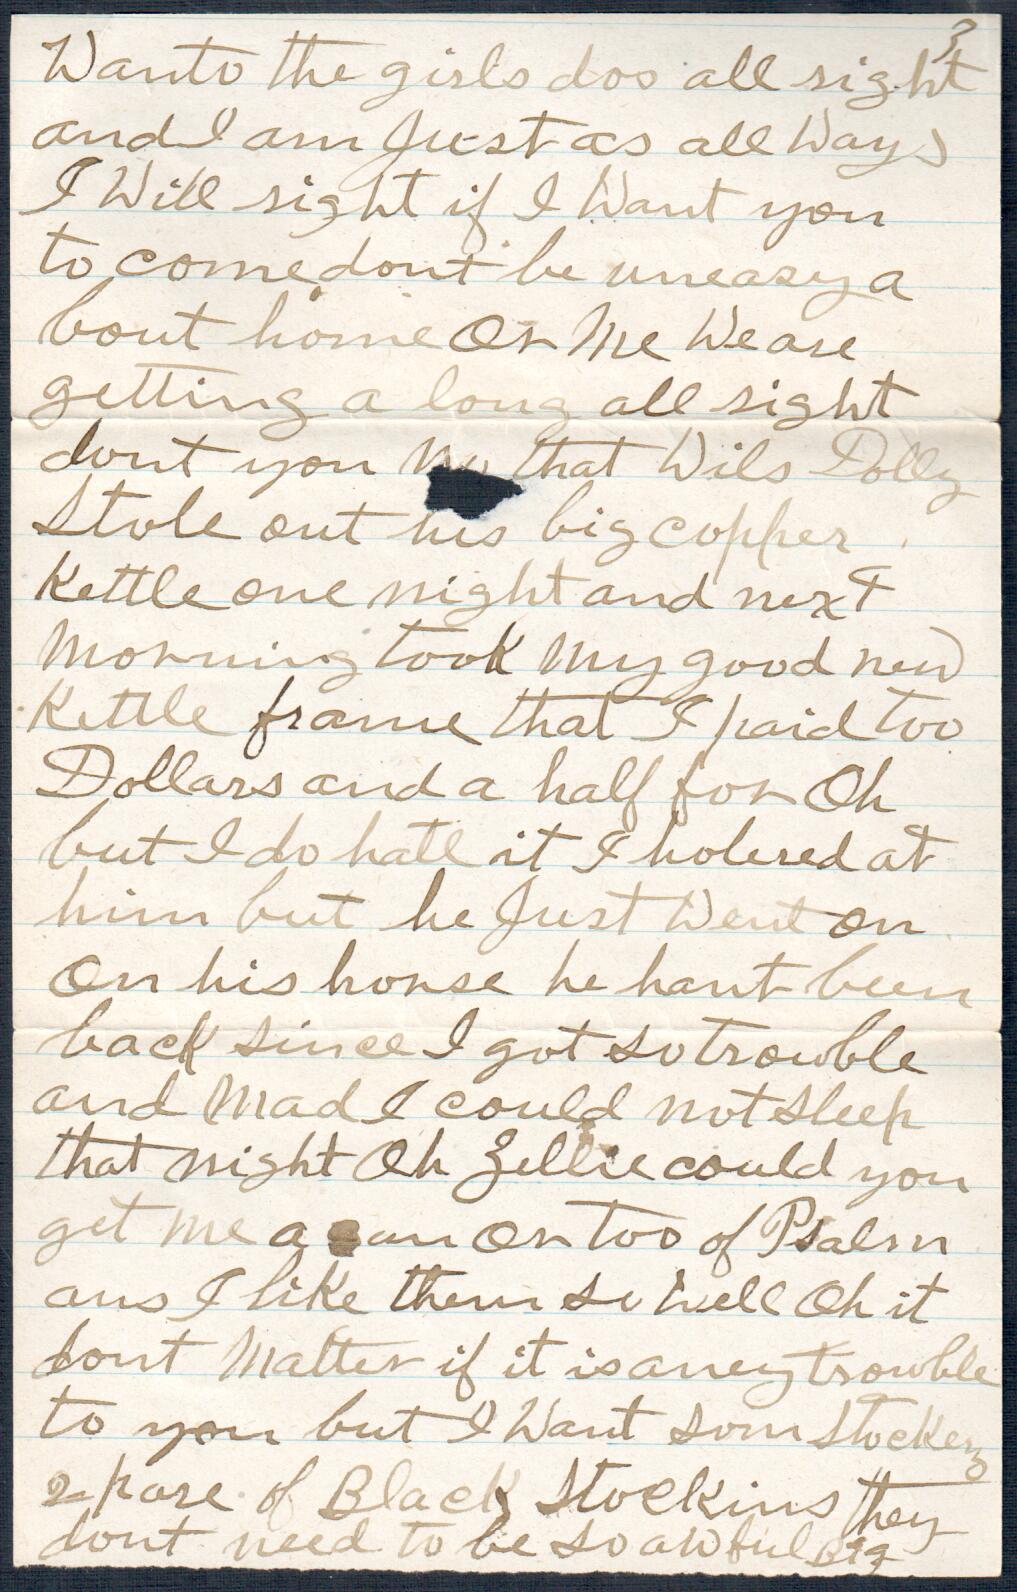 3
Wanto the girls doo all right
and I am Just as all Ways
I Will right if I Want you
to come dont be uneasy a
bout home Or Me We are
getting a long all right
dont you that Wils Dolly
Stole out his big copper
Kettle one night and next
Morning took My good new
Kettle frame that I paid too
Dollars and a half for Oh
but I do hate it I holered at
him but he Just Went on
On his horse he hant been
back since I got so trowble
and Mad I could not sleep
that night Oh Zellie could you
get me a can Or too of Psalm
ans I like them so Well Oh it
dont Matter if it is aney trowble
to you but I Want som Stockens
2 pare of Black Stockins they
dont need to be so awful Big